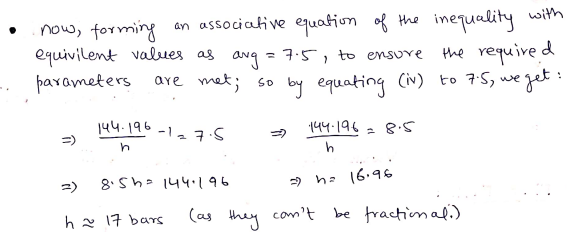 • now, forming an associative equation of the inequality with
equivilent values as avg = 7.5, to ensure the required
parameters are met; so by equating (iv) to 7.5, we get:
⇒ 144.196/h - 1 = 7.5 ⇒ 144.196/h = 8.5
⇒ 8.5h = 144.196 ⇒ h = 16.96
h ≈ 17 bars (as they can't be fractional.)